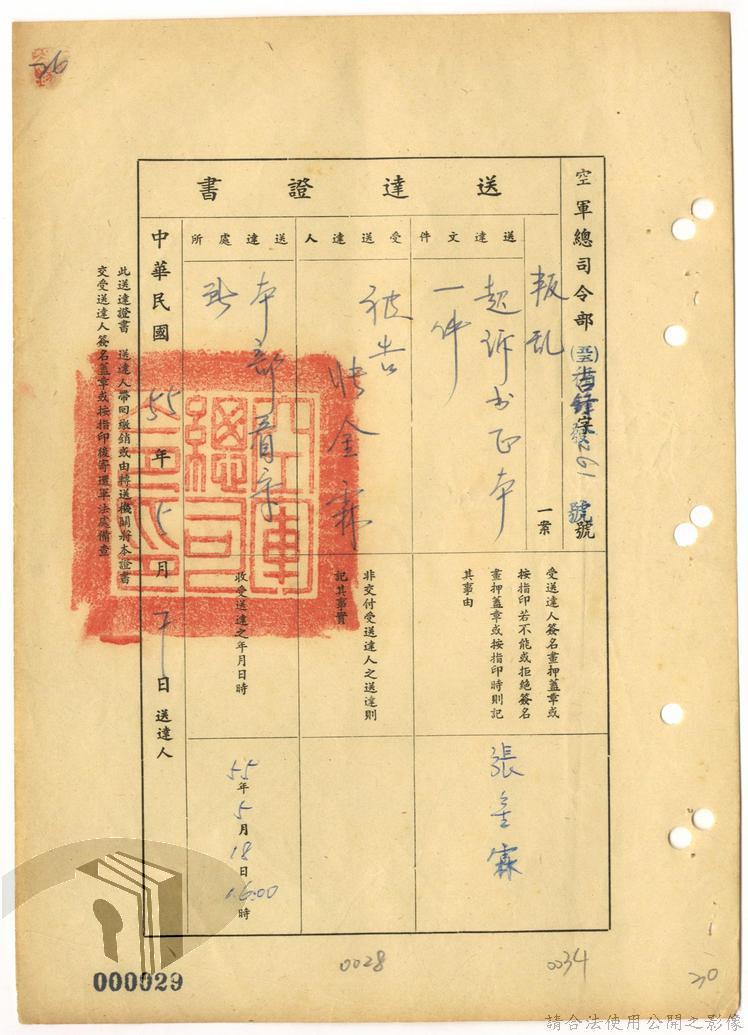 26
空軍總司令部
字
號
號
送達證書
叛亂
一案
送達文件
起訴書正本
一件
受送達人
被告
張金霖
送達處所
本部看守
所
中華民國55年5月
日
送達人
此送達證書 送達人帶回繳銷或由轉送機關將本證書
交受送達人簽名蓋章或按指印後寄還軍法處備查
受送達人簽名畫押蓋章或
按指印若不能或拒絕簽名
畫押蓋章或按指印時則記
其事由
張金霖
非交付受送達人之送達則
記其事實
收受送達之年月日時
55年5月18日16:00時
空軍總司令部印
000029
0028
0034
30
請合法使用公開之影像